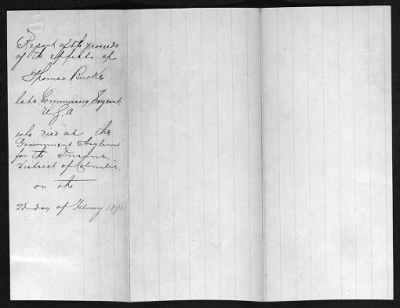 Report of the proceeds
of the effects of
Thomas Burke
late Commissary Sergeant
U.S.A
who died at the
Government Asylum
for the Insane
District of Columbia,
on the
day of February